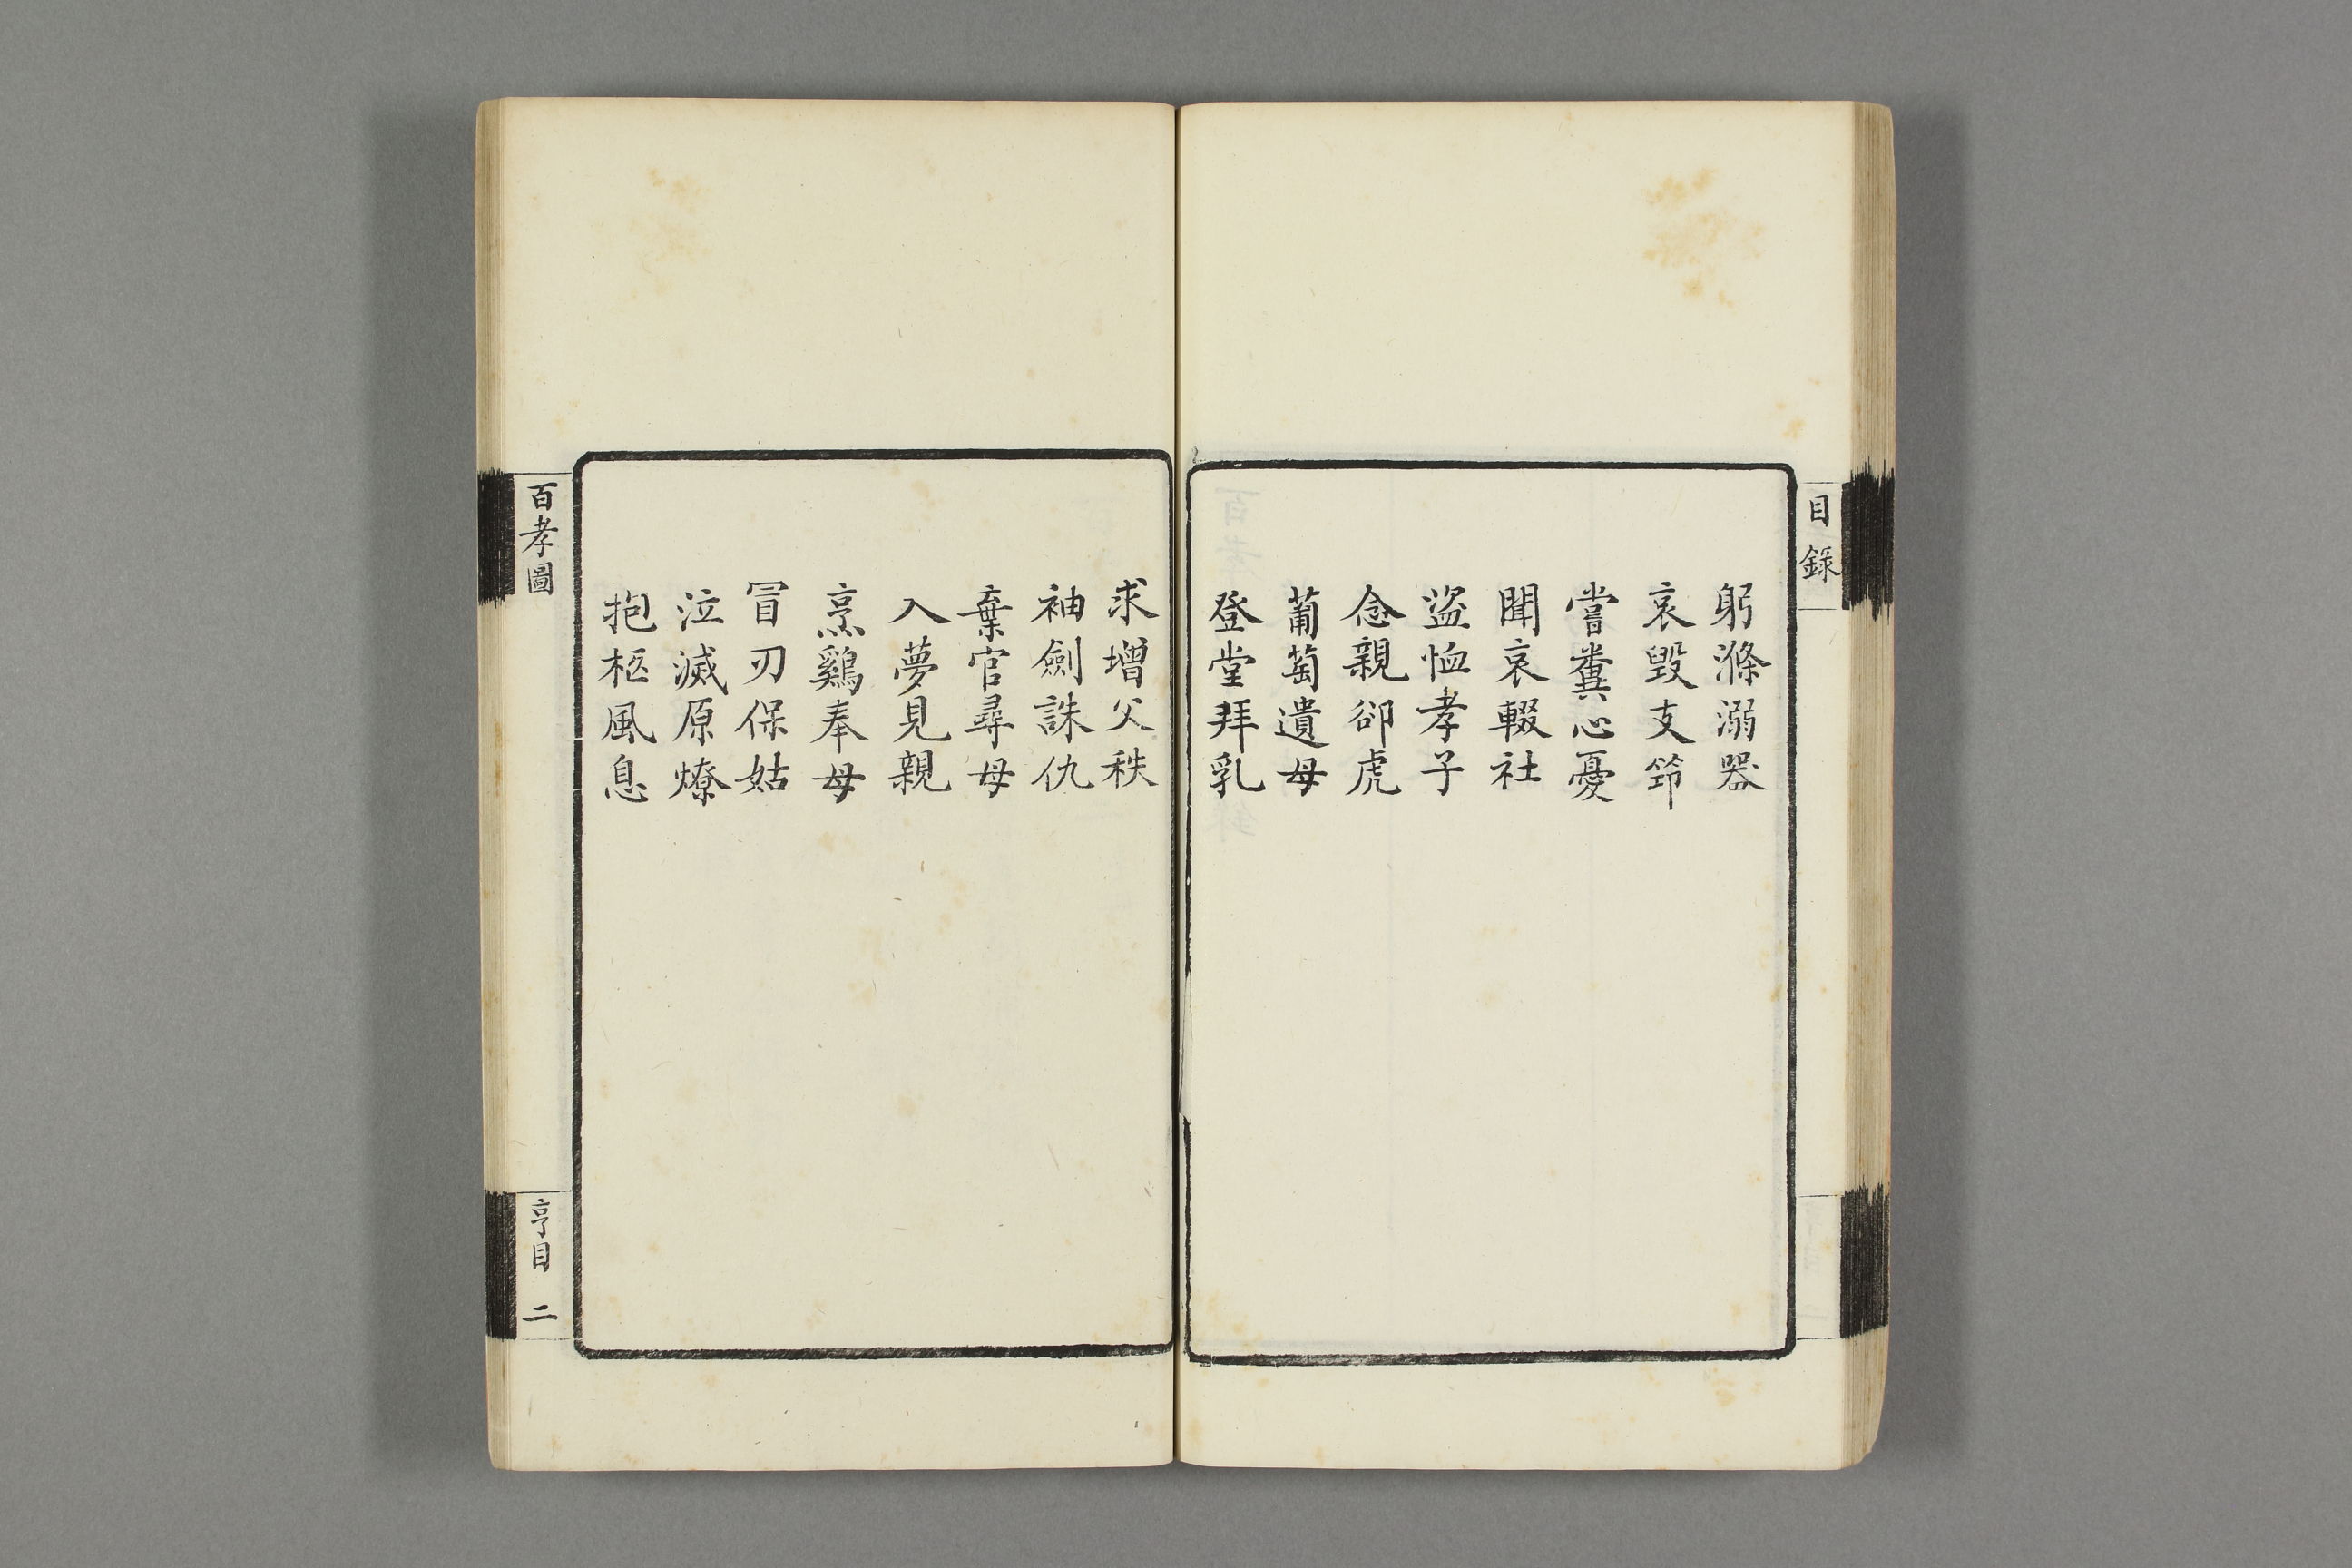 目錄
躬滌溺器
哀毀支筇
嘗糞心憂
聞哀輟社
盜恤孝子
念親卻虎
葡萄遺母
登堂拜乳
求增父秩
袖劍誅仇
棄官尋母
入夢見親
烹鷄奉母
冒刃保姑
泣滅原燎
抱柩風息
百孝圖
亨目 二